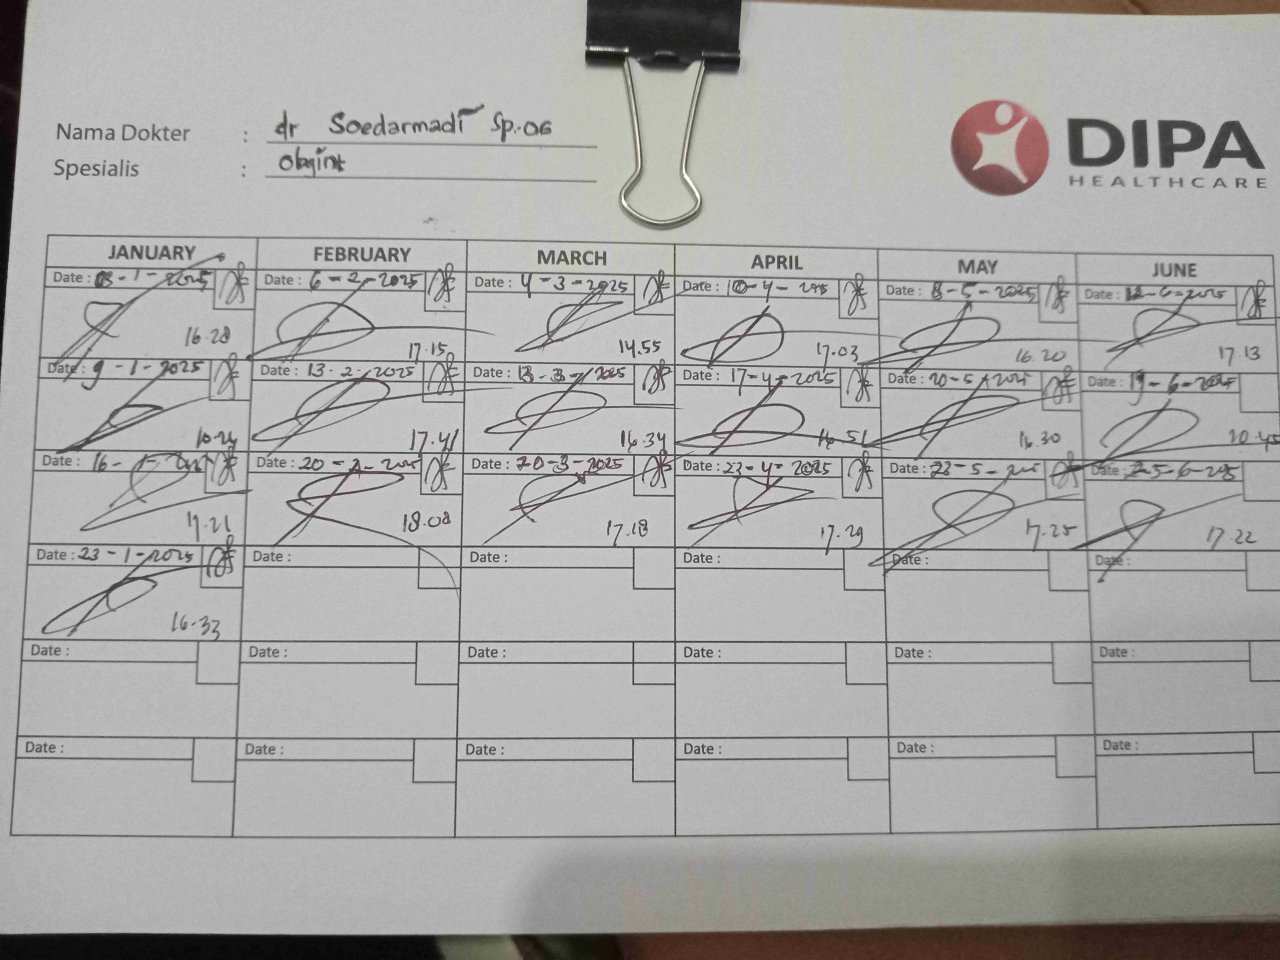 Nama Dokter : dr Soedarmadi Sp.OG
Spesialis : Obgint
DIPA
HEALTHCARE
JANUARY FEBRUARY MARCH APRIL MAY JUNE
Date : 03-1-2025 Date : 6-2-2025 Date : 4-3-2025 Date : 10-4-2025 Date : 8-5-2025 Date : 12-6-2025
16.28 17.15 14.55 17.03 16.20 17.13
Date : 9-1-2025 Date : 13-2-2025 Date : 13-3-2025 Date : 17-4-2025 Date : 20-5-2025 Date : 19-6-2025
17.41 16.34 16.51 16.30 20.45
Date : 16-1-2025 Date : 20-2-2025 Date : 20-3-2025 Date : 23-4-2025 Date : 23-5-2025 Date : 25-6-2025
17.21 18.08 17.18 17.29 17.25 17.22
Date : 23-1-2025 Date : Date : Date : Date : Date :
16.33
Date : Date : Date : Date : Date : Date :
Date : Date : Date : Date : Date : Date :